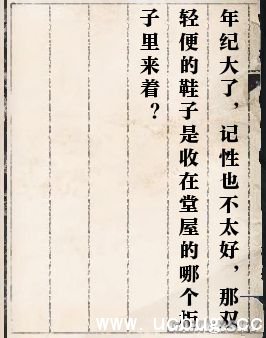 年纪大了，记性也不太好，那双
轻便的鞋子是收在堂屋的哪个柜
子里来着？